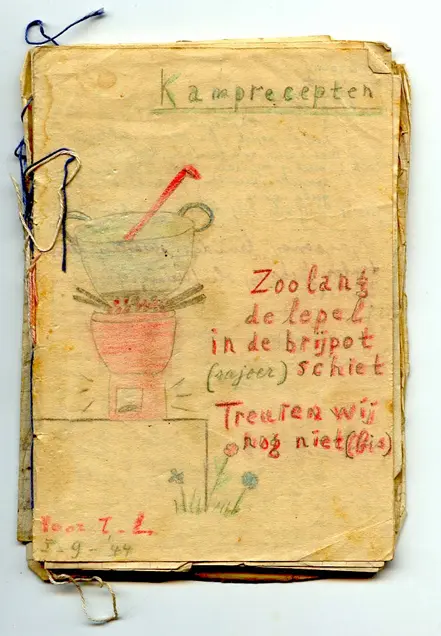 Kamprecepten
Zoolang
de lepel
in de brijpot
(sajoer) schiet
Treuren wij
nog niet (bis)
Voor T. L.
5-9-'44